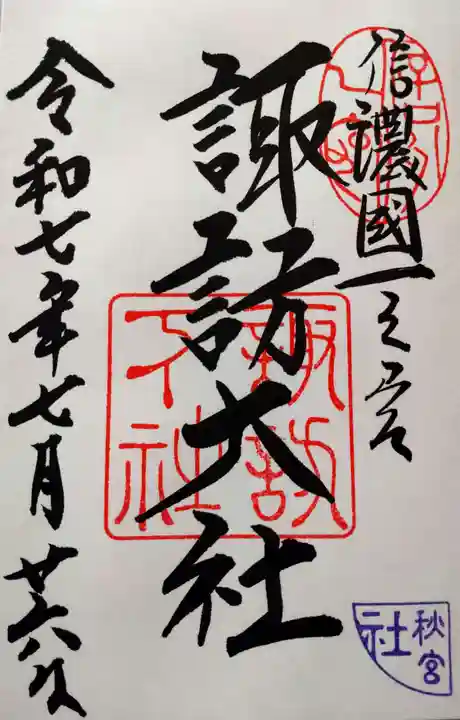 信濃國一之宮
諏訪大社
諏訪
下社
令和七年七月
秋宮
社